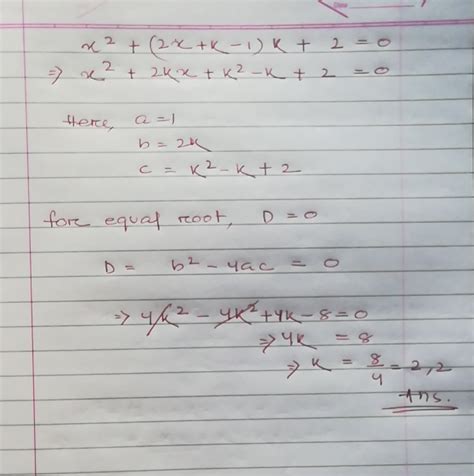 x² + (2x + k - 1) k + 2 = 0
⇒ x² + 2kx + k² - k + 2 = 0
Here, a = 1
b = 2k
c = k² - k + 2
for equal root, D = 0
D = b² - 4ac = 0
⇒ 4k² - 4k² + 4k - 8 = 0
⇒ 4k = 8
⇒ k = 8/4 = 2, 2
Ans.